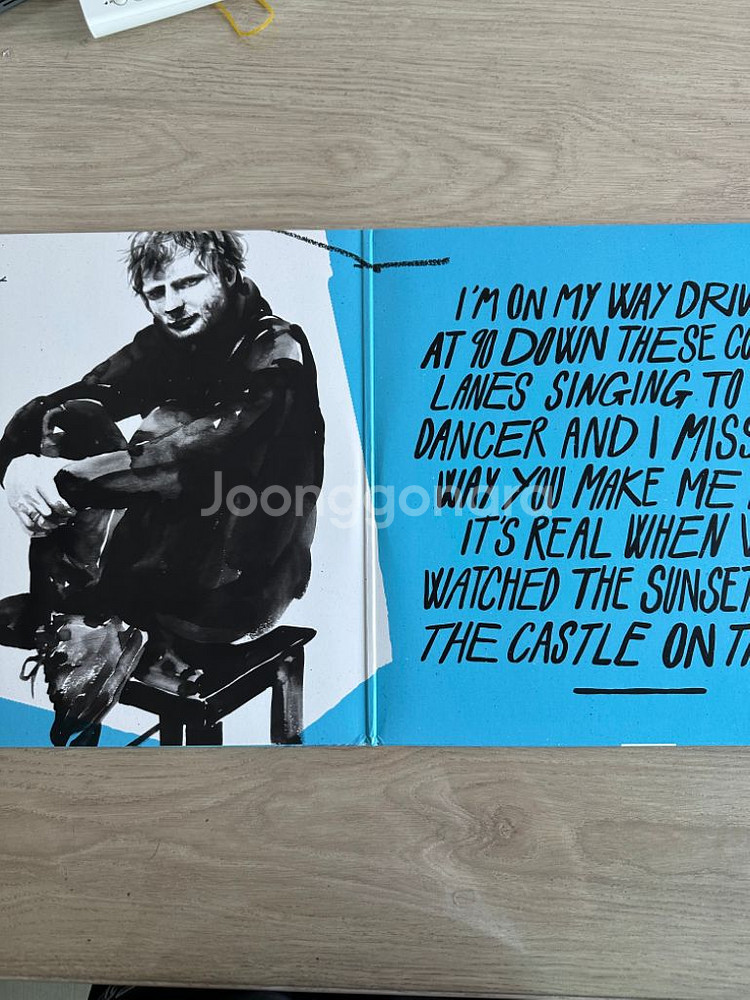 I'M ON MY WAY DRIV
AT 90 DOWN THESE CO
LANES SINGING TO
DANCER AND I MISS
WAY YOU MAKE ME
IT'S REAL WHEN W
WATCHED THE SUNSET
THE CASTLE ON TH
Joonggonara